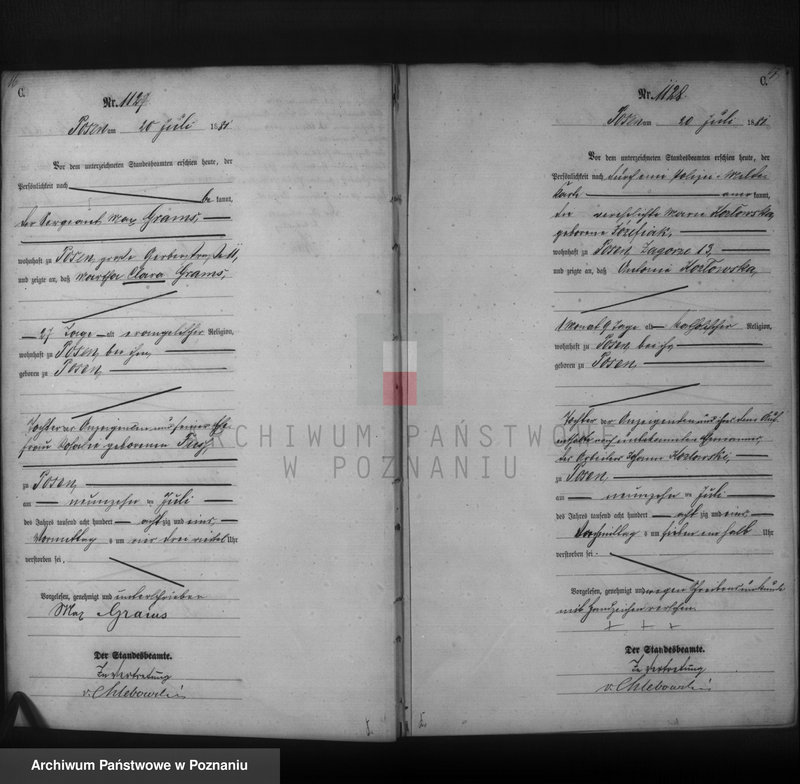 16
C.
Nr. 1127
Posen am 20 Juli 1881
Vor dem unterzeichneten Standesbeamten erschien heute, der
Persönlichkeit nach
be kannt,
der Sergeant Max Grams,
wohnhaft zu Posen, große Gerberstraße 11,
und zeigte an, daß Martha Clara Grams,
27 Tage alt evangelischer Religion,
wohnhaft zu Posen, bei ihm,
geboren zu Posen,
Tochter des Anzeigenden und seiner Ehe
frau geborenen
zu Posen,
am neunzehn ten Juli
des Jahres tausend acht hundert acht zig und eins,
Vormittag s um vier drei viertel Uhr
verstorben sei.
Vorgelesen, genehmigt und unterschrieben
Max Grams
Der Standesbeamte.
In Vertretung
v. Chlebowski
C.
Nr. 1128.
Posen am 20 Juli 1881
Vor dem unterzeichneten Standesbeamten erschien heute, der
Persönlichkeit nach durch eine Polizei-Melde
karte anerkannt,
die verehelichte Marie Kozlowska,
geborene Józefiak,
wohnhaft zu Posen, Zagorze 12,
und zeigte an, daß Antonie Kozlowska,
1 Monat 9 Tage alt katholischer Religion,
wohnhaft zu Posen bei ihr,
geboren zu Posen,
Tochter der Anzeigenden und ihres dem Auf-
enthalte nach unbekannten Ehemannes,
des Arbeiters Kozlowski,
zu Posen,
am neunzehn ten Juli
des Jahres tausend acht hundert acht zig und eins,
Vormittag s um sieben ein halb Uhr
verstorben sei.
Vorgelesen, genehmigt und wegen Schreibensunkunde
mit Handzeichen versehen.
+ + +
Der Standesbeamte.
In Vertretung
v. Chlebowski
ARCHIWUM PAŃSTWOWE
W POZNANIU
Archiwum Państwowe w Poznaniu